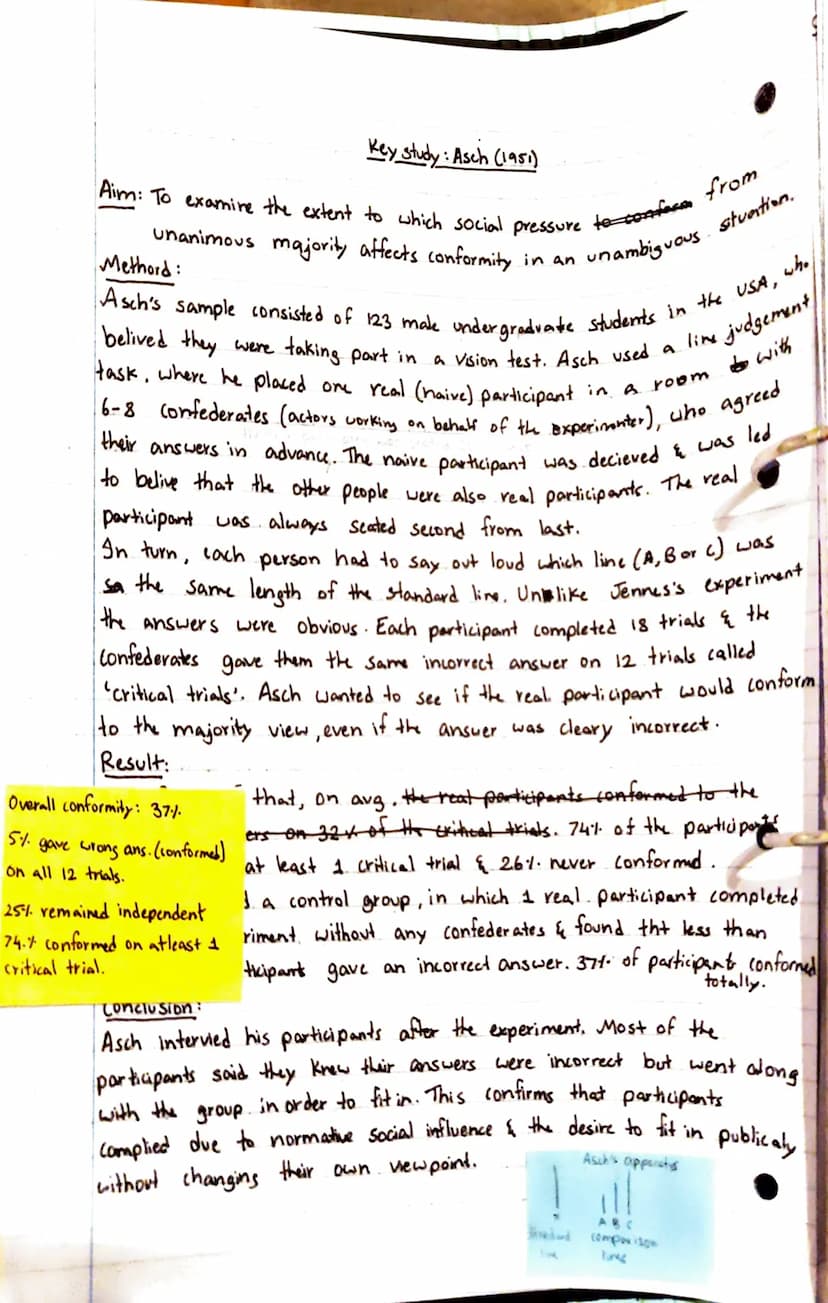 Key study: Asch (1951)
Aim: To examine the extent to which social pressure to conform from
unanimous majority affects conformity in an unambiguous situation.
Methord:
Asch's sample consisted of 123 male undergraduate students in the USA, who
belived they were taking part in a vision test. Asch used a line judgement
task, where he placed one real (naive) participant in a room to with
6-8 confederates (actors working on behalf of the experimenter), who agreed
their answers in advance. The naive participant was decieved & was led
to belive that the other people were also real participants. The real
participant was always seated second from last.
In turn, each person had to say out loud which line (A, B or C) was
sa the same length of the standard line. Unlike Jennes's experiment
the answers were obvious. Each participant completed 18 trials & the
confederates gave them the same incorrect answer on 12 trials called
'critical trials'. Asch wanted to see if the real participant would conform
to the majority view, even if the answer was cleary incorrect.
Result:
that, on avg. the real participants conformed to the
ers on 32% of the critical trials. 74% of the participants
at least 1 critical trial & 26% never conformed.
a control group, in which 1 real participant completed
riment without any confederates & found tht less than
ticipant gave an incorrect answer. 37% of participants conformed
totally.
Overall conformity: 37%
5% gave wrong ans. (conformed)
on all 12 trials.
25% remained independent
74% conformed on atleast 1
critical trial.
Conclusion:
Asch intervied his participants after the experiment. Most of the
participants said they knew their answers were incorrect but went along
with the group in order to fit in. This confirms that participants
complied due to normative social influence & the desire to fit in publicaly
without changing their own viewpoint.
Asch's apparatus
A B C
standard comparison
line lines